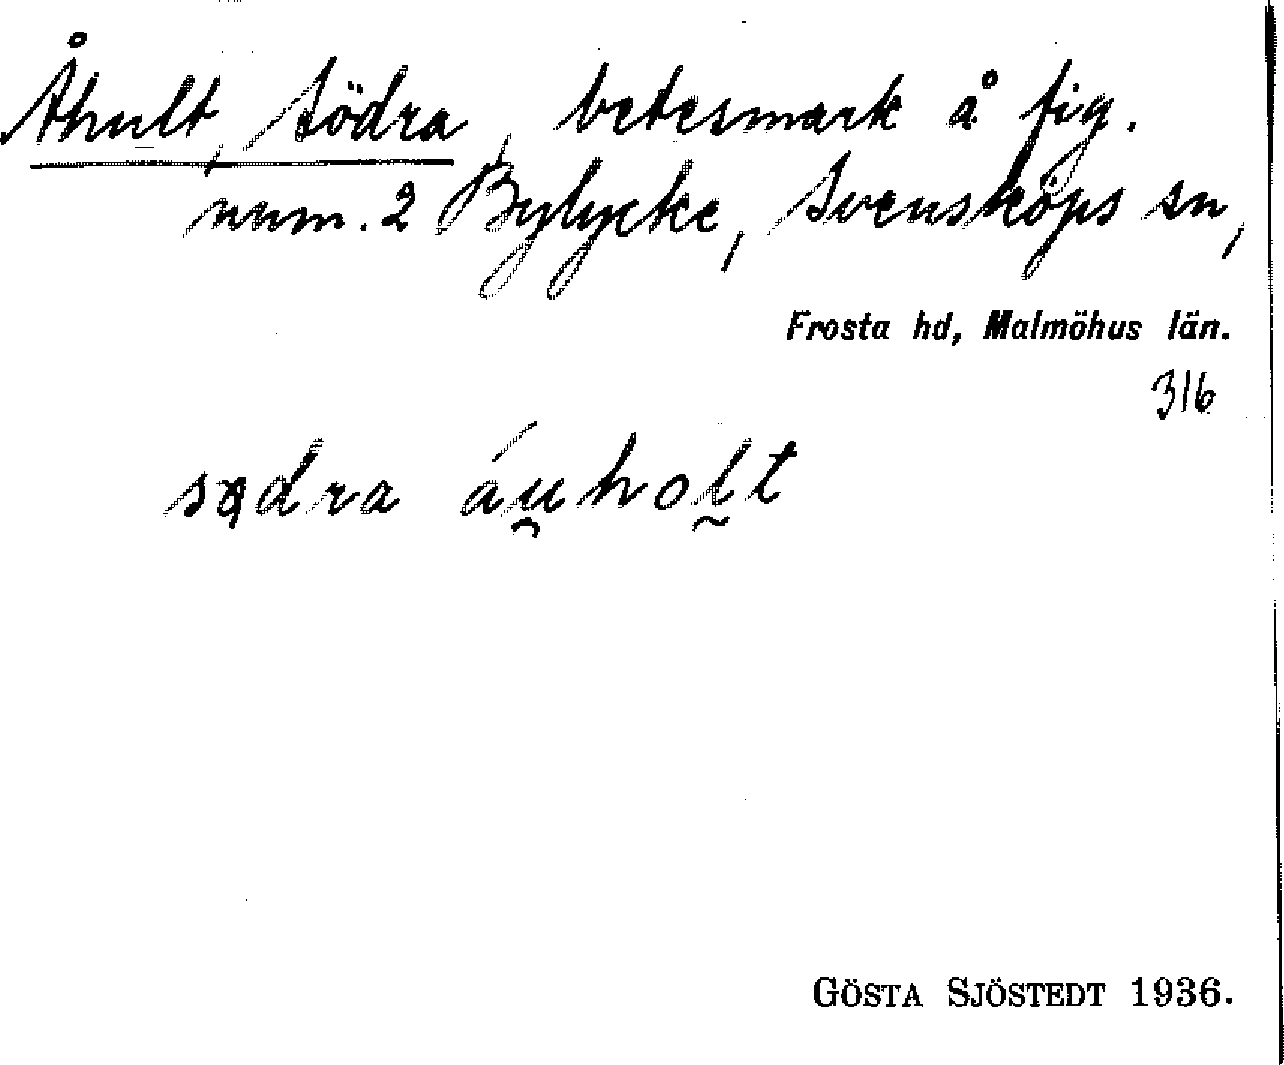 Åhult, Södra, betesmark å fig.
num. 2 Bylycke, Svensköps sn,
Frosta hd, Malmöhus län.
316
sɵdra áu̯hol̰t
GÖSTA SJÖSTEDT 1936.